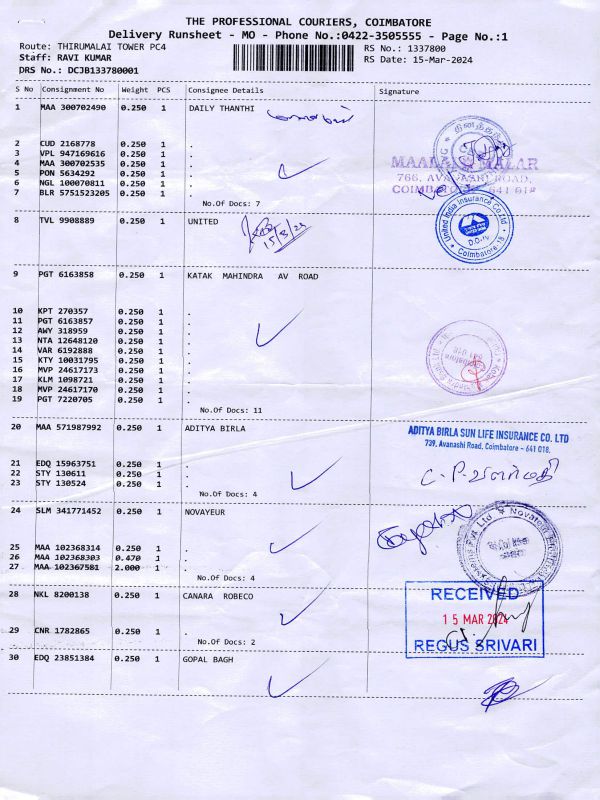 THE PROFESSIONAL COURIERS, COIMBATORE
Delivery Runsheet - MO - Phone No.:0422-3505555 - Page No.:1
Route: THIRUMALAI TOWER PC4
RS No.: 1337800
Staff: RAVI KUMAR
RS Date: 15-Mar-2024
DRS No.: DCJB133780001
S No Consignment No Weight PCS Consignee Details Signature
1 MAA 300702490 0.250 1 DAILY THANTHI
2 CUD 2168778 0.250 1 .
3 VPL 947169616 0.250 1 .
4 MAA 300702535 0.250 1 .
5 PON 5634292 0.250 1 .
6 NGL 100070811 0.250 1 .
7 BLR 5751523205 0.250 1 .
No.Of Docs: 7
MAALAI MALAR
766, AVANASHI ROAD,
COIMBATORE - 641 018
8 TVL 9908889 0.250 1 UNITED
15/3/24
United India Insurance Co.Ltd
D.O-IV
Coimbatore-18
9 PGT 6163858 0.250 1 KATAK MAHINDRA AV ROAD
10 KPT 270357 0.250 1 .
11 PGT 6163857 0.250 1 .
12 AWY 318959 0.250 1 .
13 NTA 12648120 0.250 1 .
14 VAR 6192888 0.250 1 .
15 KTY 10031795 0.250 1 .
16 MVP 24617173 0.250 1 .
17 KLM 1098721 0.250 1 .
18 MVP 24617170 0.250 1 .
19 PGT 7220705 0.250 1 .
No.Of Docs: 11
20 MAA 571987992 0.250 1 ADITYA BIRLA
ADITYA BIRLA SUN LIFE INSURANCE CO. LTD
739, Avanashi Road, Coimbatore - 641 018.
21 EDQ 15963751 0.250 1 .
22 STY 130611 0.250 1 .
23 STY 130524 0.250 1 .
No.Of Docs: 4
C.P.வளர்மதி
24 SLM 341771452 0.250 1 NOVAYEUR
25 MAA 102368314 0.250 1 .
26 MAA 102368303 0.470 1 .
27 MAA 102367581 2.000 1 .
No.Of Docs: 4
28 NKL 8200138 0.250 1 CANARA ROBECO
29 CNR 1782865 0.250 1 .
No.Of Docs: 2
RECEIVED
15 MAR 2024
REGUS SRIVARI
30 EDQ 23851384 0.250 1 GOPAL BAGH